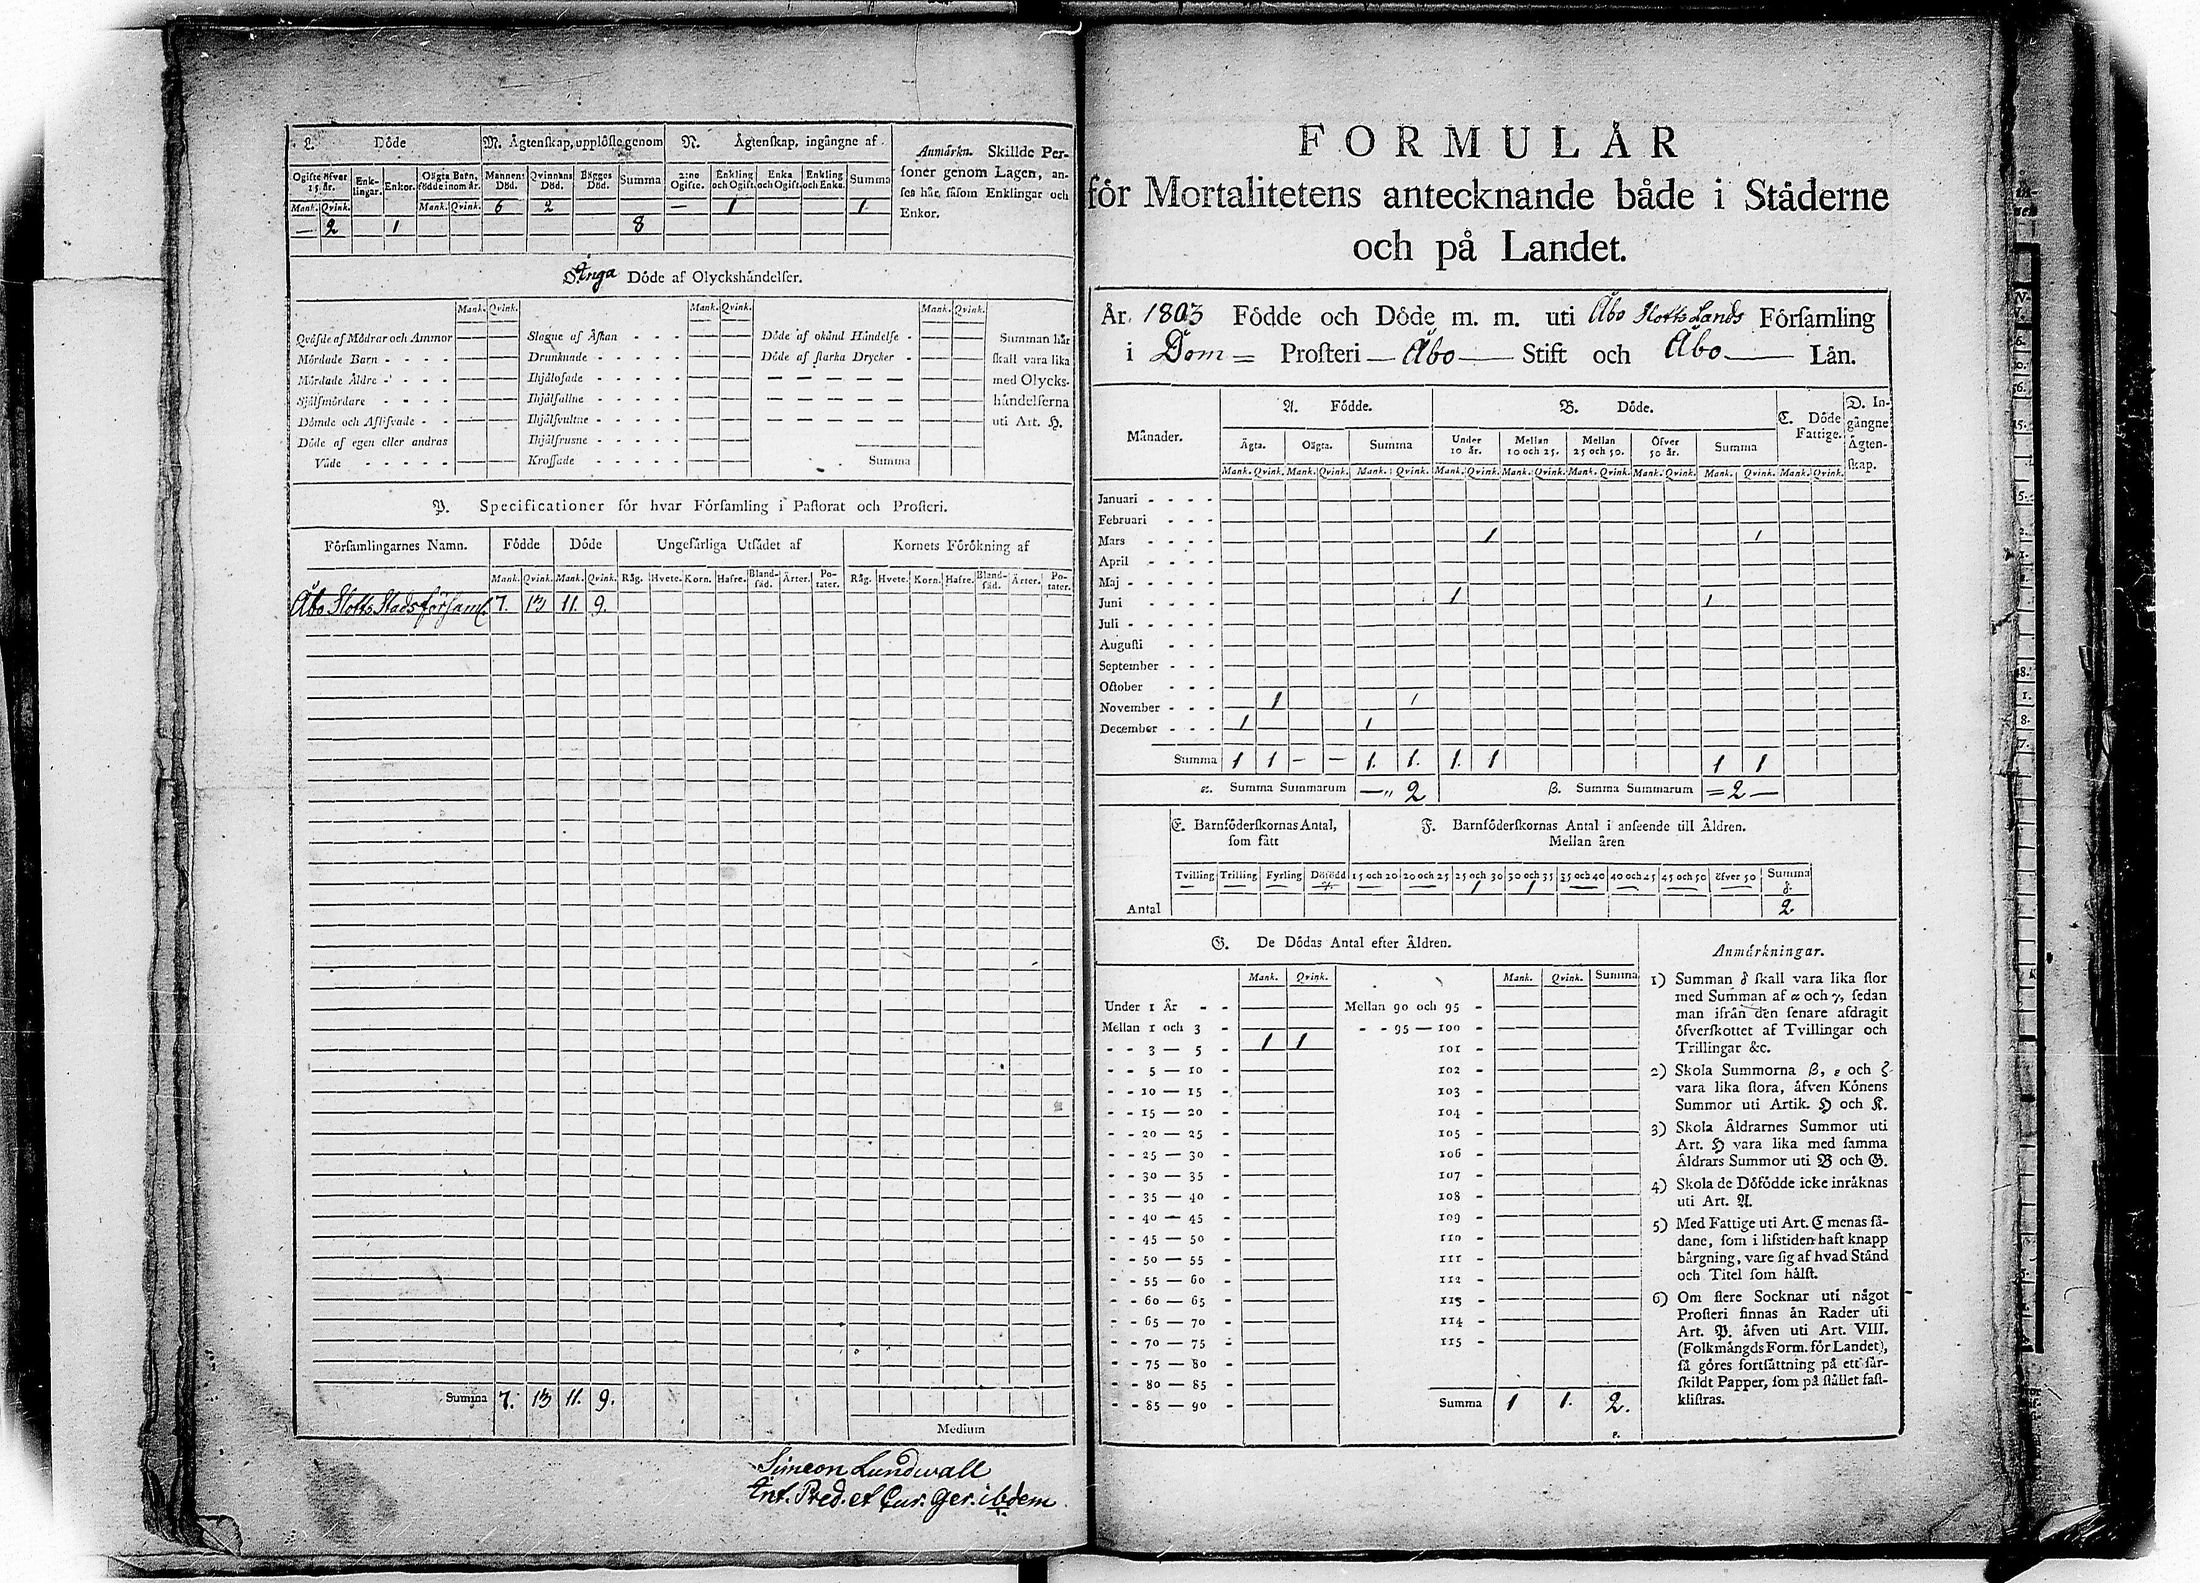 L. Döde
M. Ägtenskap, upplöste genom
N. Ägtenskap, ingångne af
Anmärkn. Skillde Per-
soner genom Lagen, an-
ses här såsom Enklingar och
Enkor.
Ogifte öfver 15 år. Enk- lingar. Enkor. Oägta Barn, födde inom år. Mannens Död. Qvinnans Död. Bägges Död. Summa 2:ne Ogifte. Enkling och Ogift. Enka och Ogift. Enkling och Enka. Summa
Mank. Qvink. Mank. Qvink. 6 2 — 1 1
— 2 1 8
Inga Döde af Olyckshändelser.
Mank. Qvink. Mank. Qvink. Mank. Qvink.
Qväfde af Mödrar och Ammor Slagne af Åskan - - - Döde af okänd Händelse - Summan här
Mördade Barn - - - - Drunknade - - - - - Döde af starka Drycker - skall vara lika
Mördade Äldre - - - - Ihjälosade - - - - - — — — — — — med Olycks-
Sjelfmördare - - - - Ihjälfallne - - - - - — — — — — — händelserna
Dömde och Aflifvade - - Ihjälsvultne - - - - uti Art. H.
Döde af egen eller andras Ihjälfrusne - - - - -
Våde - - - - - Krossade - - - - - Summa
P. Specificationer för hvar Församling i Pastorat och Prosteri.
Församlingarnes Namn. Födde Döde Ungefärliga Utsädet af Kornets Förökning af
Mank. Qvink. Mank. Qvink. Råg. Hvete. Korn. Hafre. Bland- säd. Ärter. Po- tater. Råg. Hvete. Korn. Hafre. Bland- säd. Ärter. Po- tater.
Åbo Slotts Stadsförsaml. 7. 13 11. 9.
Summa 7. 13 11. 9.
Medium
Simeon Lundwall
Ant. Pred. et Cur. Ger. ibdem
FORMULÄR
för Mortalitetens antecknande både i Städerne
och på Landet.
År 1803 Födde och Döde m. m. uti Åbo Slotts Lands Församling
i Dom = Prosteri — Åbo — Stift och Åbo — Län.
Månader. A. Födde. B. Döde. C. Döde Fattige. D. In- gångne Ägten- skap.
Ägta. Oägta. Summa Under 10 år. Mellan 10 och 25. Mellan 25 och 50. Öfver 50 år. Summa
Mank. Qvink. Mank. Qvink. Mank. Qvink. Mank. Qvink. Mank. Qvink. Mank. Qvink. Mank. Qvink. Mank. Qvink. Mank. Qvink.
Januari - - - -
Februari - - -
Mars - - - - 1 1
April - - - -
Maj - - - - -
Juni - - - - 1 1
Juli - - - - -
Augusti - - -
September - - -
October - - -
November - - - 1 1
December - - - 1 1
Summa 1 1 — — 1. 1. 1. 1 1 1
α. Summa Summarum —„ 2 β. Summa Summarum = 2 —
E. Barnföderskornas Antal, F. Barnföderskornas Antal i anseende till Äldren.
som fått Mellan åren
Tvilling Trilling Fyrling Dödfödd 15 och 20 20 och 25 25 och 30 30 och 35 35 och 40 40 och 45 45 och 50 öfver 50 Summa
— — — γ. — — 1 1 — — — — δ.
Antal 2
G. De Dödas Antal efter Äldren.
Mank. Qvink. Mank. Qvink. Summa
Under 1 År - - Mellan 90 och 95 -
Mellan 1 och 3 - - - 95 — 100 -
- - 3 — 5 - 1 1 101 -
- - 5 — 10 - 102 -
- - 10 — 15 - 103 -
- - 15 — 20 - 104 -
- - 20 — 25 - 105 -
- - 25 — 30 - 106 -
- - 30 — 35 - 107 -
- - 35 — 40 - 108 -
- - 40 — 45 - 109 -
- - 45 — 50 - 110 -
- - 50 — 55 - 111 -
- - 55 — 60 - 112 -
- - 60 — 65 - 113 -
- - 65 — 70 - 114 -
- - 70 — 75 - 115 -
- - 75 — 80 -
- - 80 — 85 -
- - 85 — 90 - Summa 1 1. 2.
ε.
Anmärkningar.
1) Summan δ skall vara lika stor
med Summan af α och γ, sedan
man ifrån den senare afdragit
öfverskottet af Tvillingar och
Trillingar &c.
2) Skola Summorna β, ε och ζ
vara lika stora, äfven Könens
Summor uti Artik. H och K.
3) Skola Åldrarnes Summor uti
Art. H vara lika med samma
Åldrars Summor uti B och G.
4) Skola de Döfödde icke inräknas
uti Art. A.
5) Med Fattige uti Art. C menas så-
dane, som i lifstiden haft knapp
bärgning, vare sig af hvad Stånd
och Titel som hälst.
6) Om flere Socknar uti något
Prosteri finnas än Rader uti
Art. P. äfven uti Art. VIII.
(Folkmängds Form. för Landet),
så göres fortsättning på ett sär-
skildt Papper, som på stället fast-
klistras.